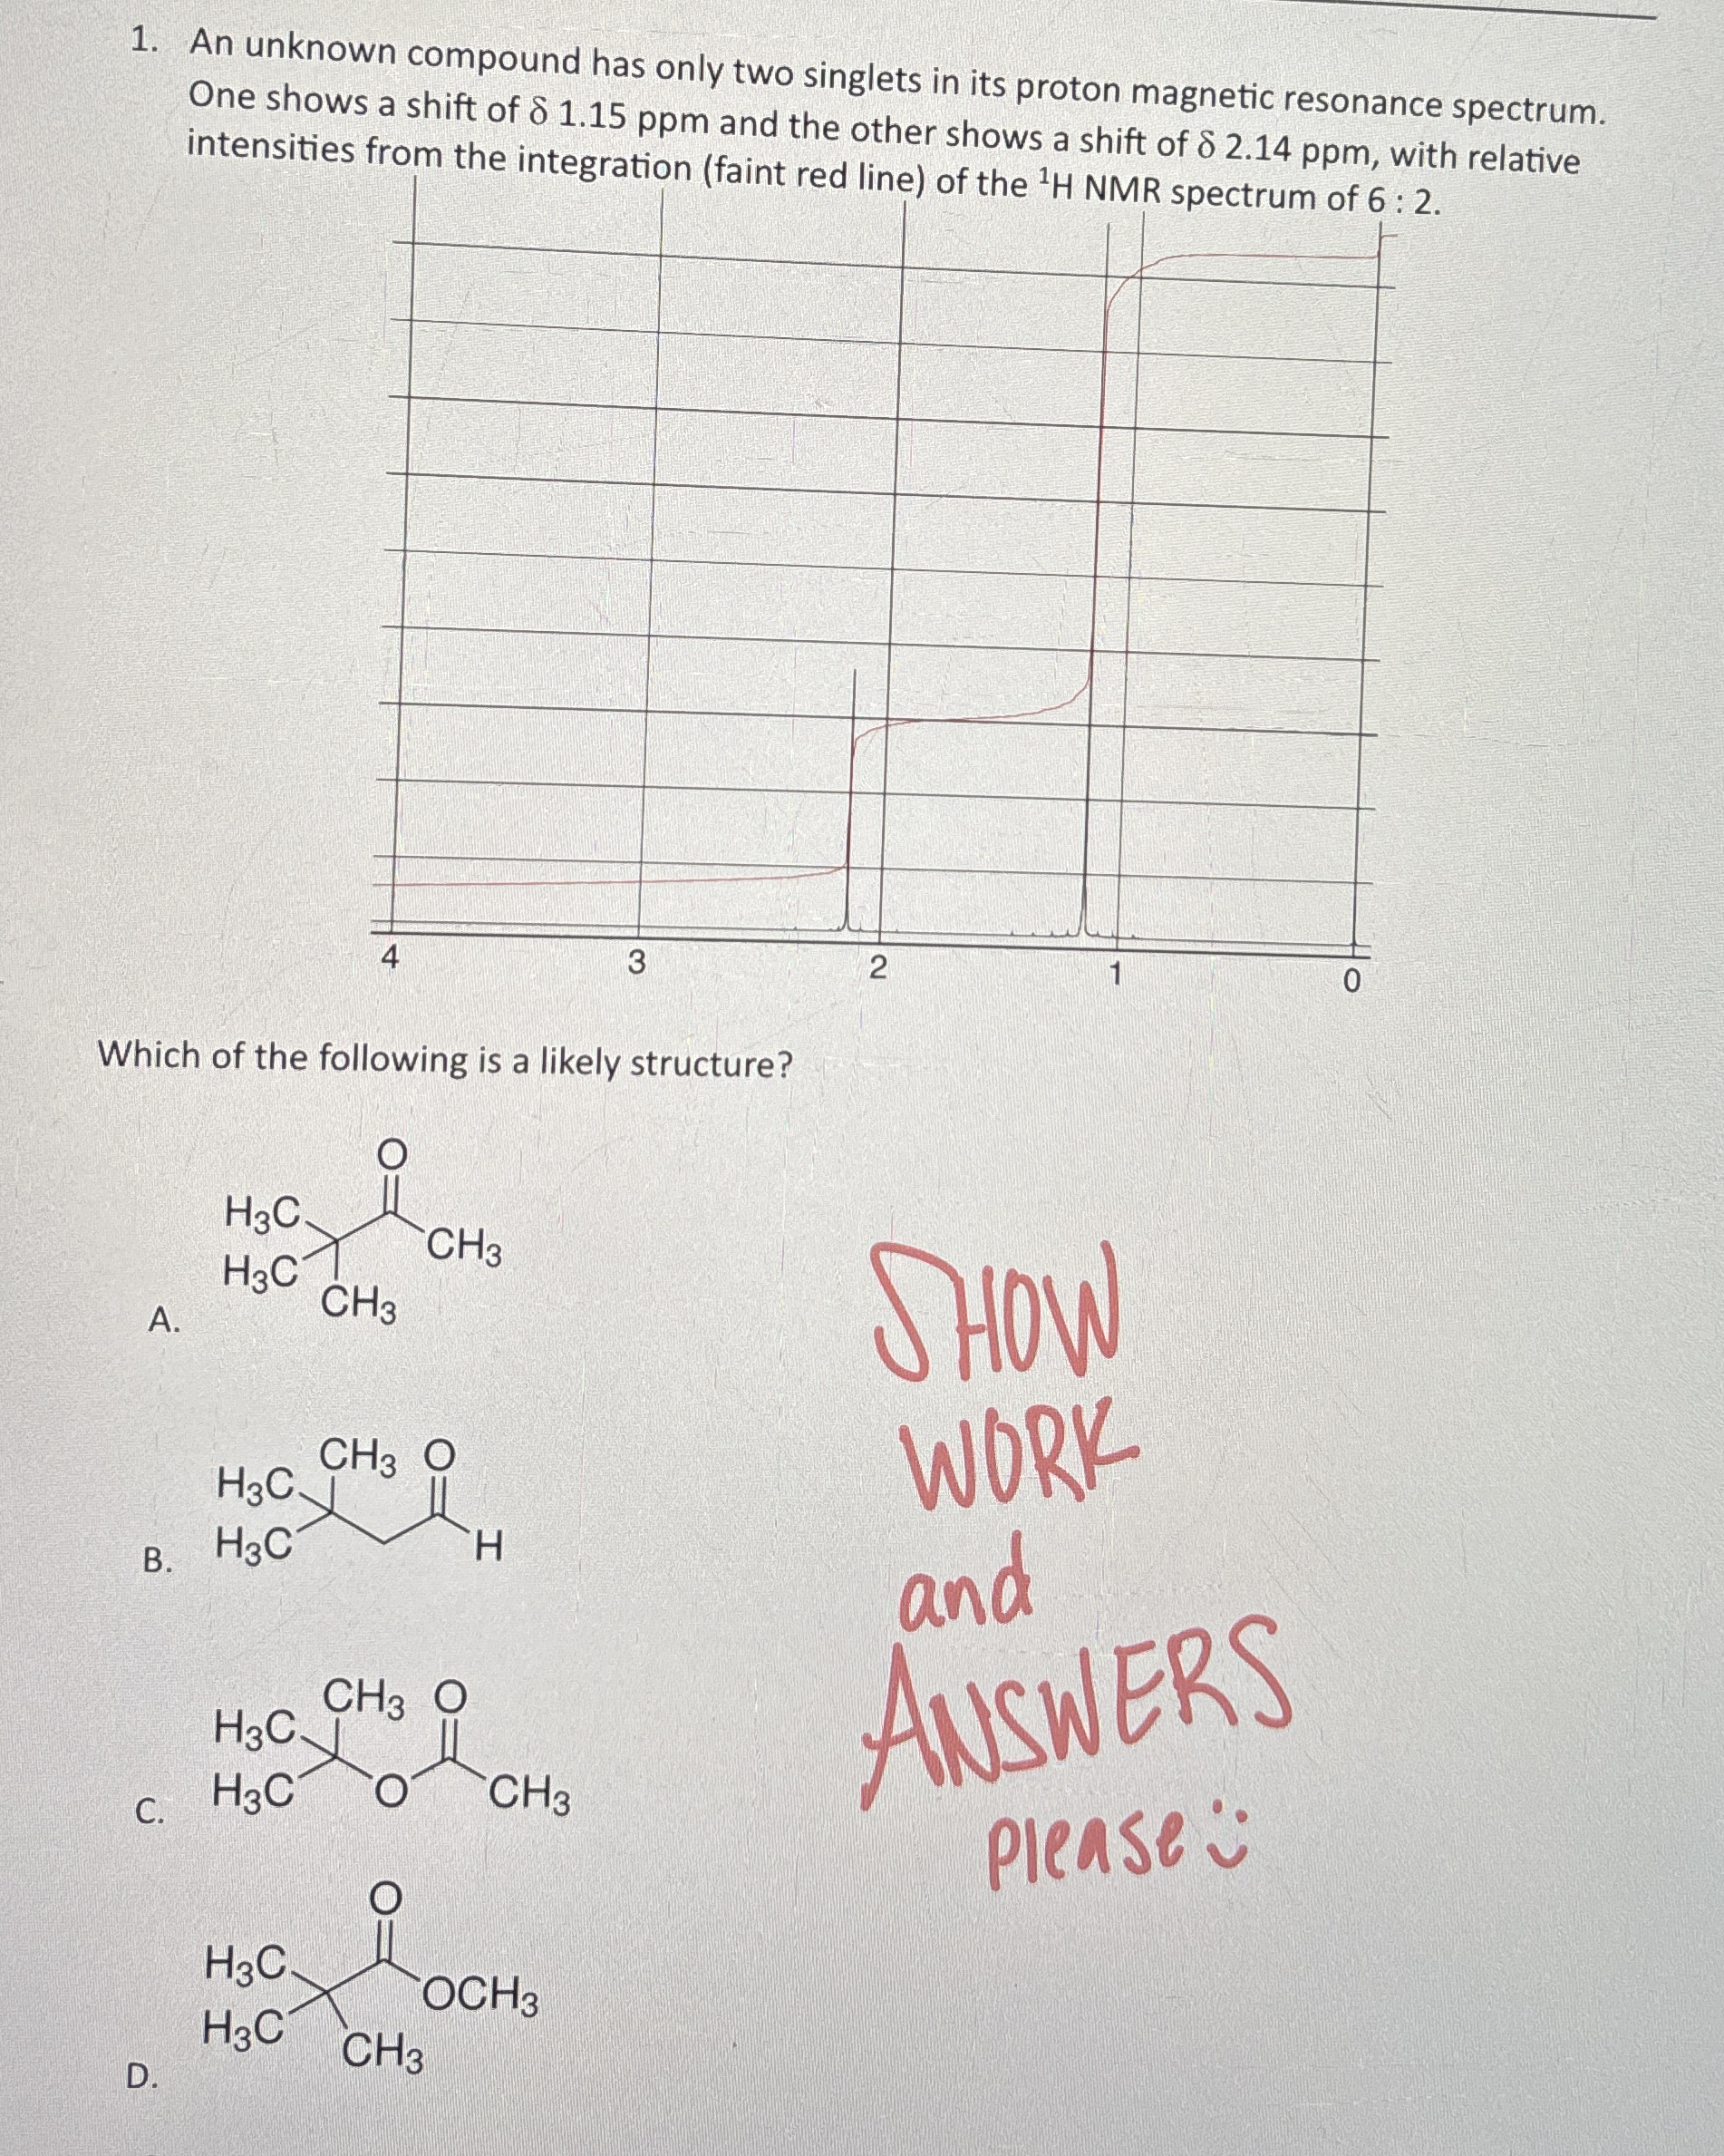 1. An unknown compound has only two singlets in its proton magnetic resonance spectrum.
One shows a shift of δ 1.15 ppm and the other shows a shift of δ 2.14 ppm, with relative
intensities from the integration (faint red line) of the ¹H NMR spectrum of 6 : 2.
4 3 2 1 0
Which of the following is a likely structure?
O
H₃C
CH₃
H₃C
CH₃
A.
CH₃ O
H₃C
H₃C
H
B.
CH₃ O
H₃C
H₃C O CH₃
C.
O
H₃C
OCH₃
H₃C
CH₃
D.
SHOW
WORK
and
ANSWERS
please :)